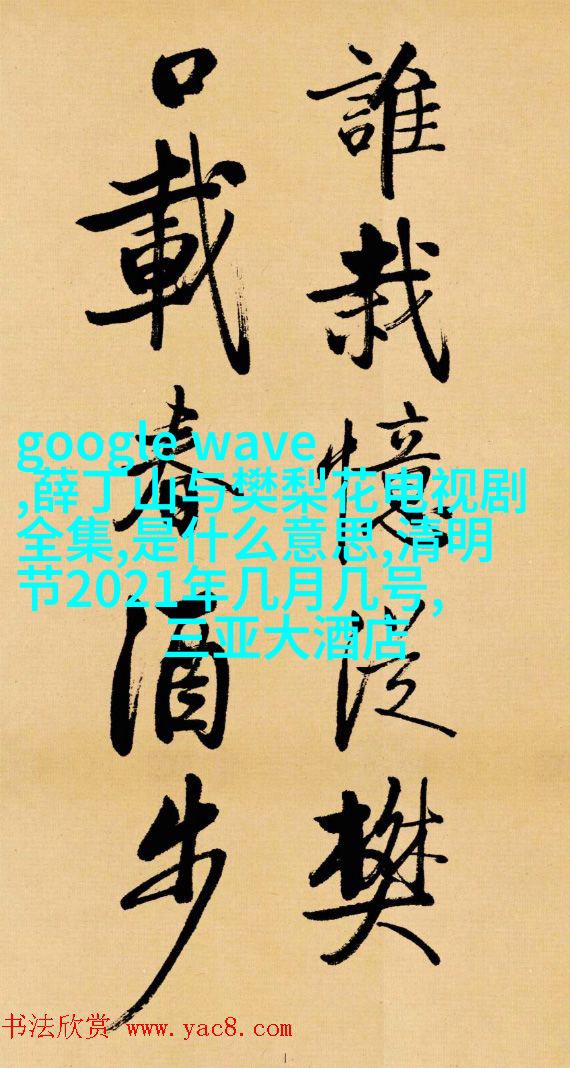 誰栽憶從樊
口載春酒步
google wave
,薛丁山与樊梨花电视剧
全集,是什么意思,清明
节2021年几月几号,
三亚大酒店
书法欣赏 www.yac8.com